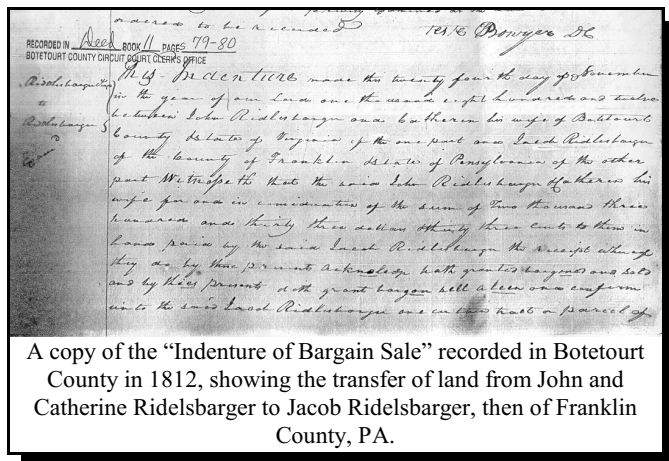 ordered to be recorded
Teste Bowyer DC
RECORDED IN Deed BOOK 11 PAGES 79-80
BOTETOURT COUNTY CIRCUIT COURT CLERK'S OFFICE
This Indenture made this twenty fourth day of November
in the year of our Lord one thousand eight hundred and twelve
between John Ridlesbarger and Catherin his wife of Botetourt
County & State of Virginia of the one part and Jacob Ridlesbarger
of the County of Franklin & State of Pensylvania of the other
part Witnesseth that the said John Ridlesbarger & Catherin his
wife for and in consideration of the sum of Two thousand three
hundred and thirty three dollars & thirty three cents to them in
hand paid by the said Jacob Ridlesbarger the receipt whereof
they do by these presents acknoledge hath granted bargoned and sold
and by these presents doth grant bargon sell alien and confirm
unto the said Jacob Ridlesbarger one certain tract or parcel of
Ridlesbarger
to
Ridlesbarger
A copy of the “Indenture of Bargain Sale” recorded in Botetourt
County in 1812, showing the transfer of land from John and
Catherine Ridelsbarger to Jacob Ridelsbarger, then of Franklin
County, PA.